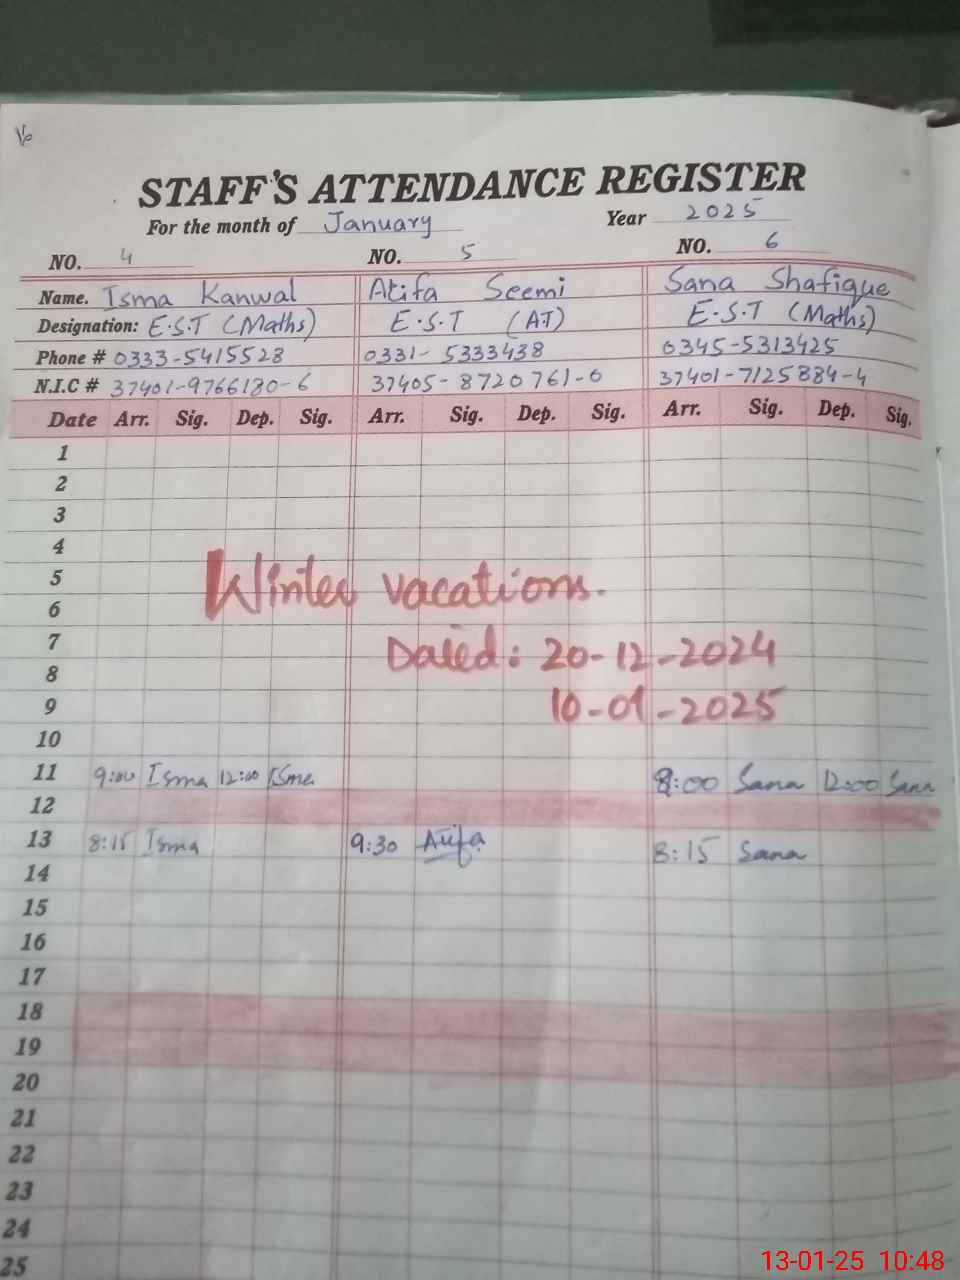 STAFF'S ATTENDANCE REGISTER
For the month of January Year 2025
NO. 4 NO. 5 NO. 6
Name. Isma Kanwal Atifa Seemi Sana Shafique
Designation: E.S.T (Maths) E.S.T (AT) E.S.T (Maths)
Phone # 0333-5415528 0331-5333438 0345-5313425
N.I.C # 37401-9766180-6 37405-8720761-0 37401-7125884-4
Date Arr. Sig. Dep. Sig. Arr. Sig. Dep. Sig. Arr. Sig. Dep. Sig.
1
2
3
4
5
Winter vacations.
6
7
Dated: 20-12-2024
8
9
10-01-2025
10
11 9:00 Isma 12:00 Isma 8:00 Sana 12:00 Sana
12
13 8:15 Isma 9:30 Atifa 8:15 Sana
14
15
16
17
18
19
20
21
22
23
24
25
13-01-25 10:48